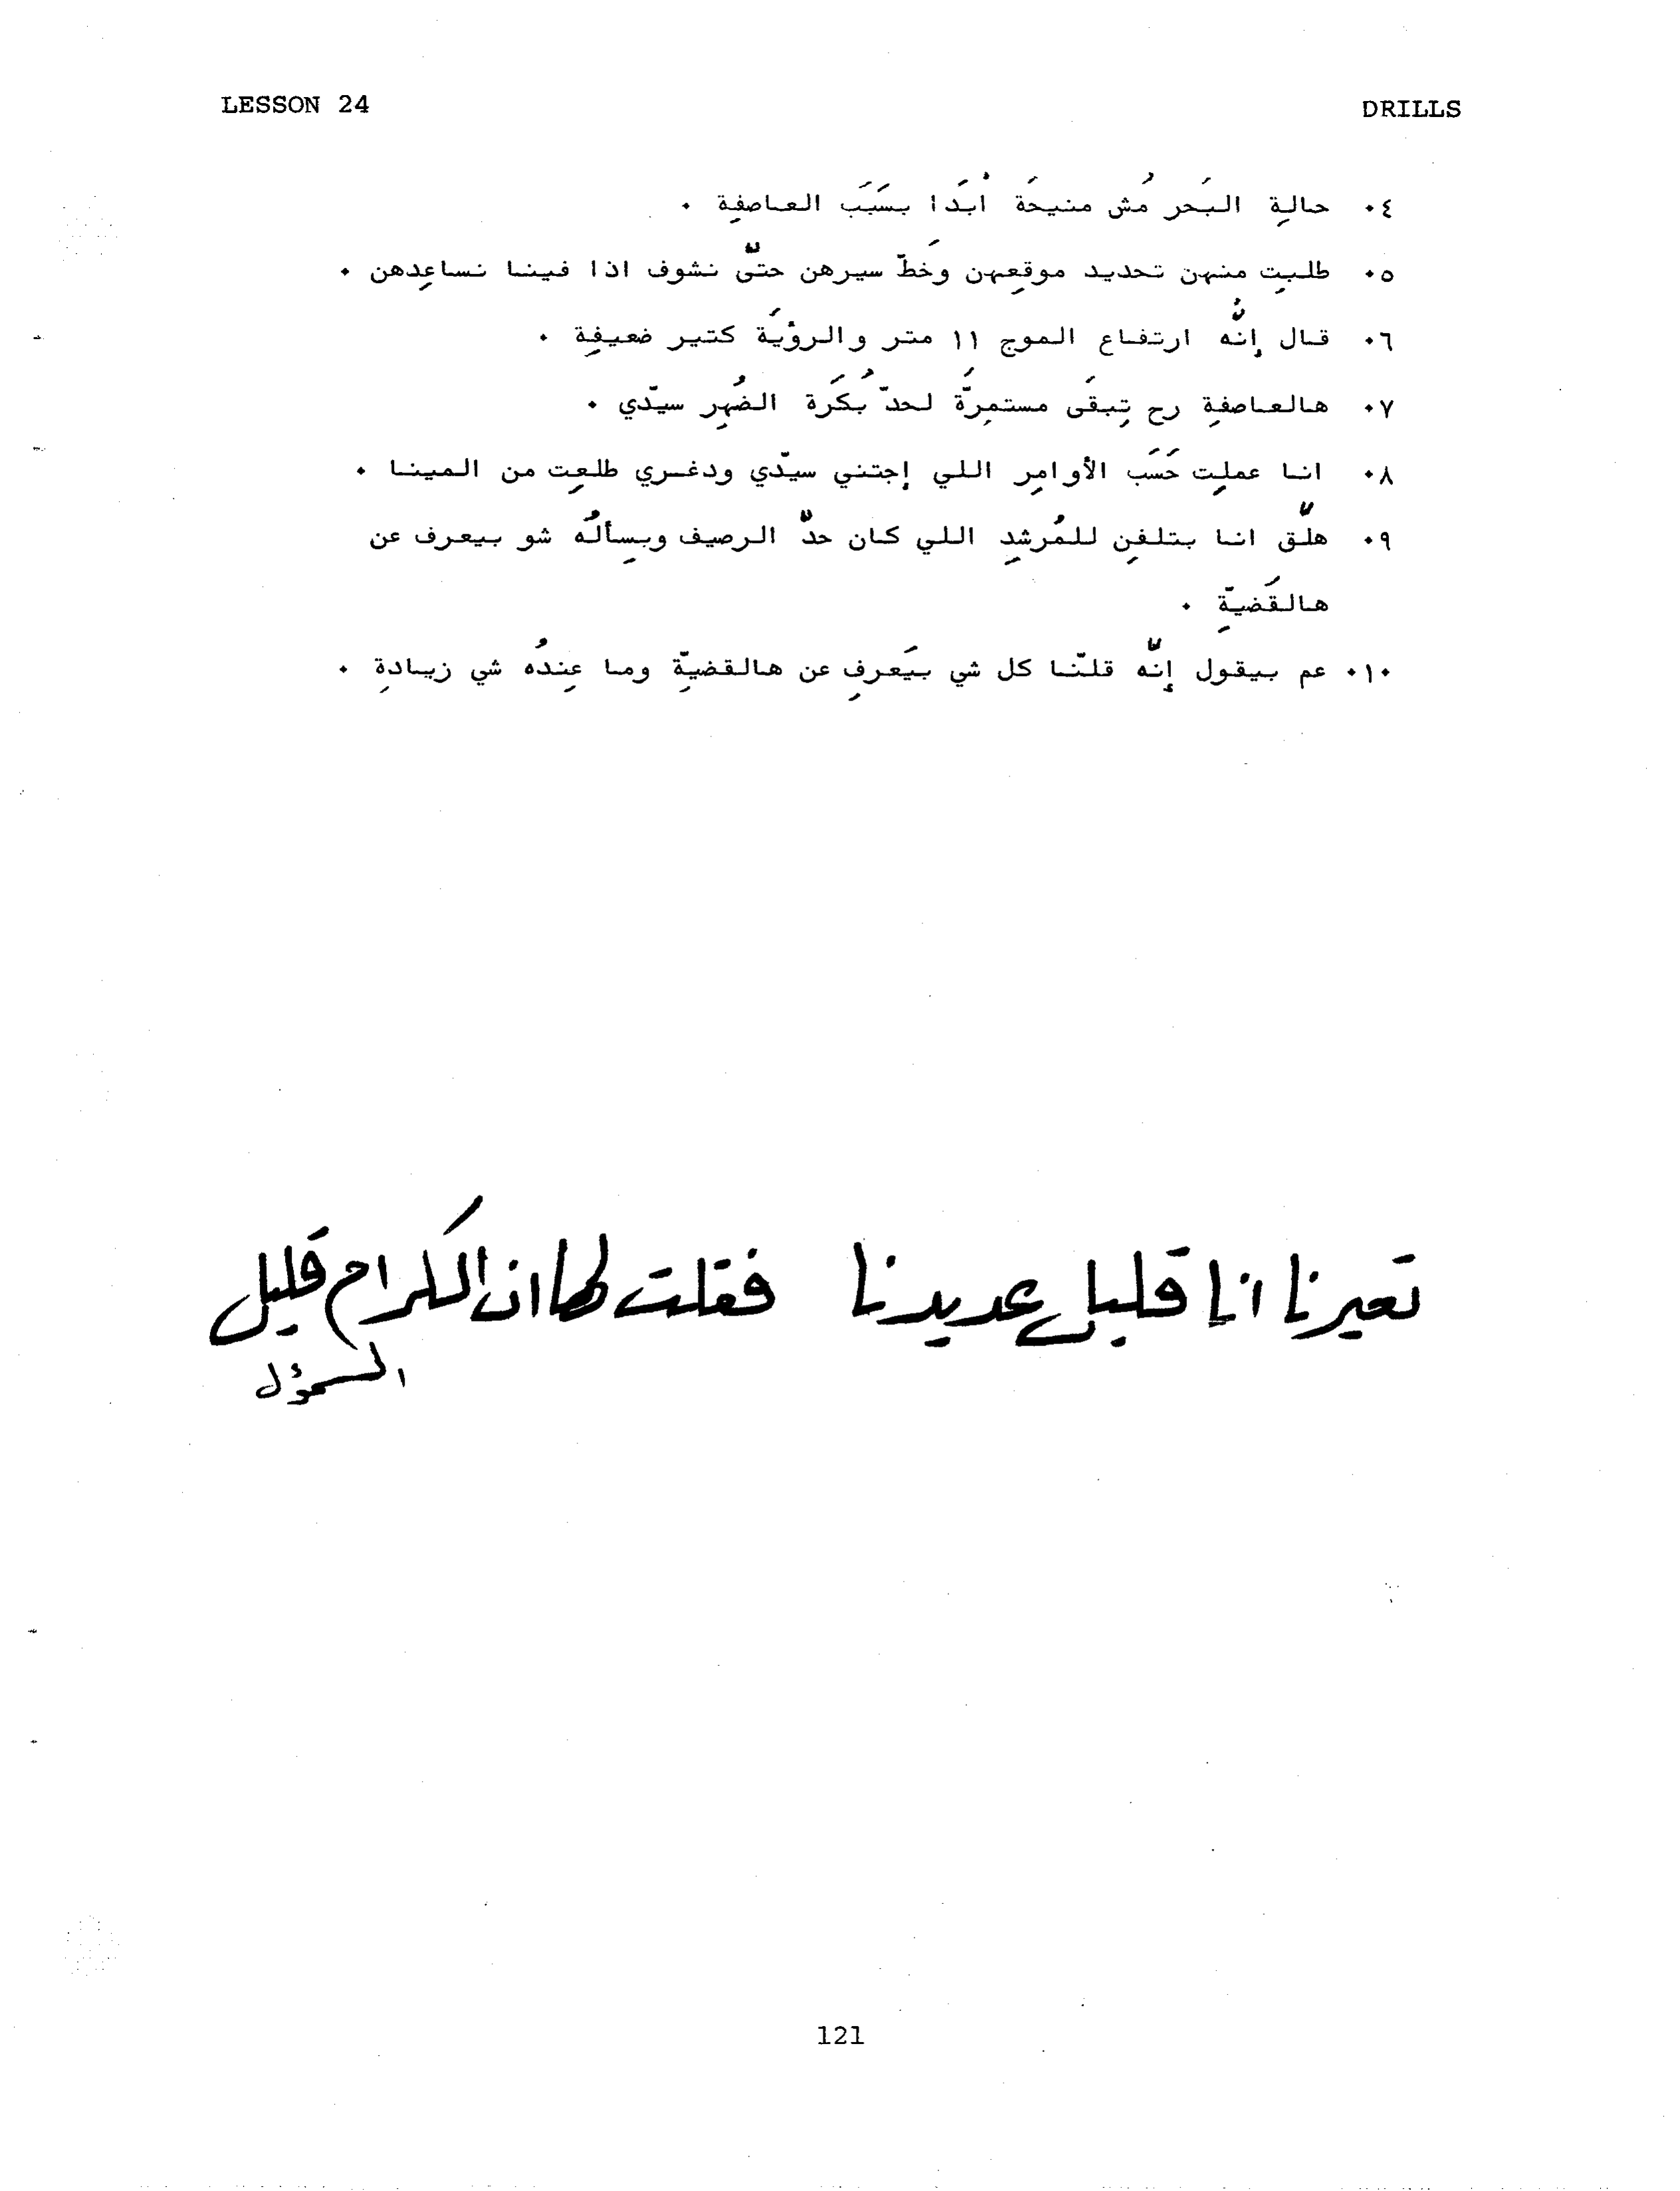 LESSON 24
DRILLS
٤٠ حالةِ البَحر مُش منيحَة أبَدًا بسَبَب العاصفِة ٠
٥٠ طلبتِ منهن تحديد موقعِهن وخَطّ سيرهن حتّى نشوف اذا فينا نساعِدهن ٠
٦٠ قال إنُّه ارتفاع الموج ١١ متر والرؤيَة كتير ضعيفِة ٠
٧٠ هالعاصفِة رح تِبقَى مستمِرَّة لحدّ بُكَرة الضُهِر سيّدي ٠
٨٠ انا عملِت حَسَب الأوامِر اللي إجتني سيّدي ودغري طلعِت من المينا ٠
٩٠ هلّق انا بتلفِن للمُرشِد اللي كان حدّ الرصيف وبِسألُه شو بيعرف عن
هالقَضيّةِ ٠
١٠٠ عم بيقول إنّه قلنّا كل شي بيَعرفِ عن هالقضيّة وما عِندُه شي زيادةِ ٠
تعيرنا انا قليل عديدنا فقلت لها ان الكرام قليل
السموُل
121